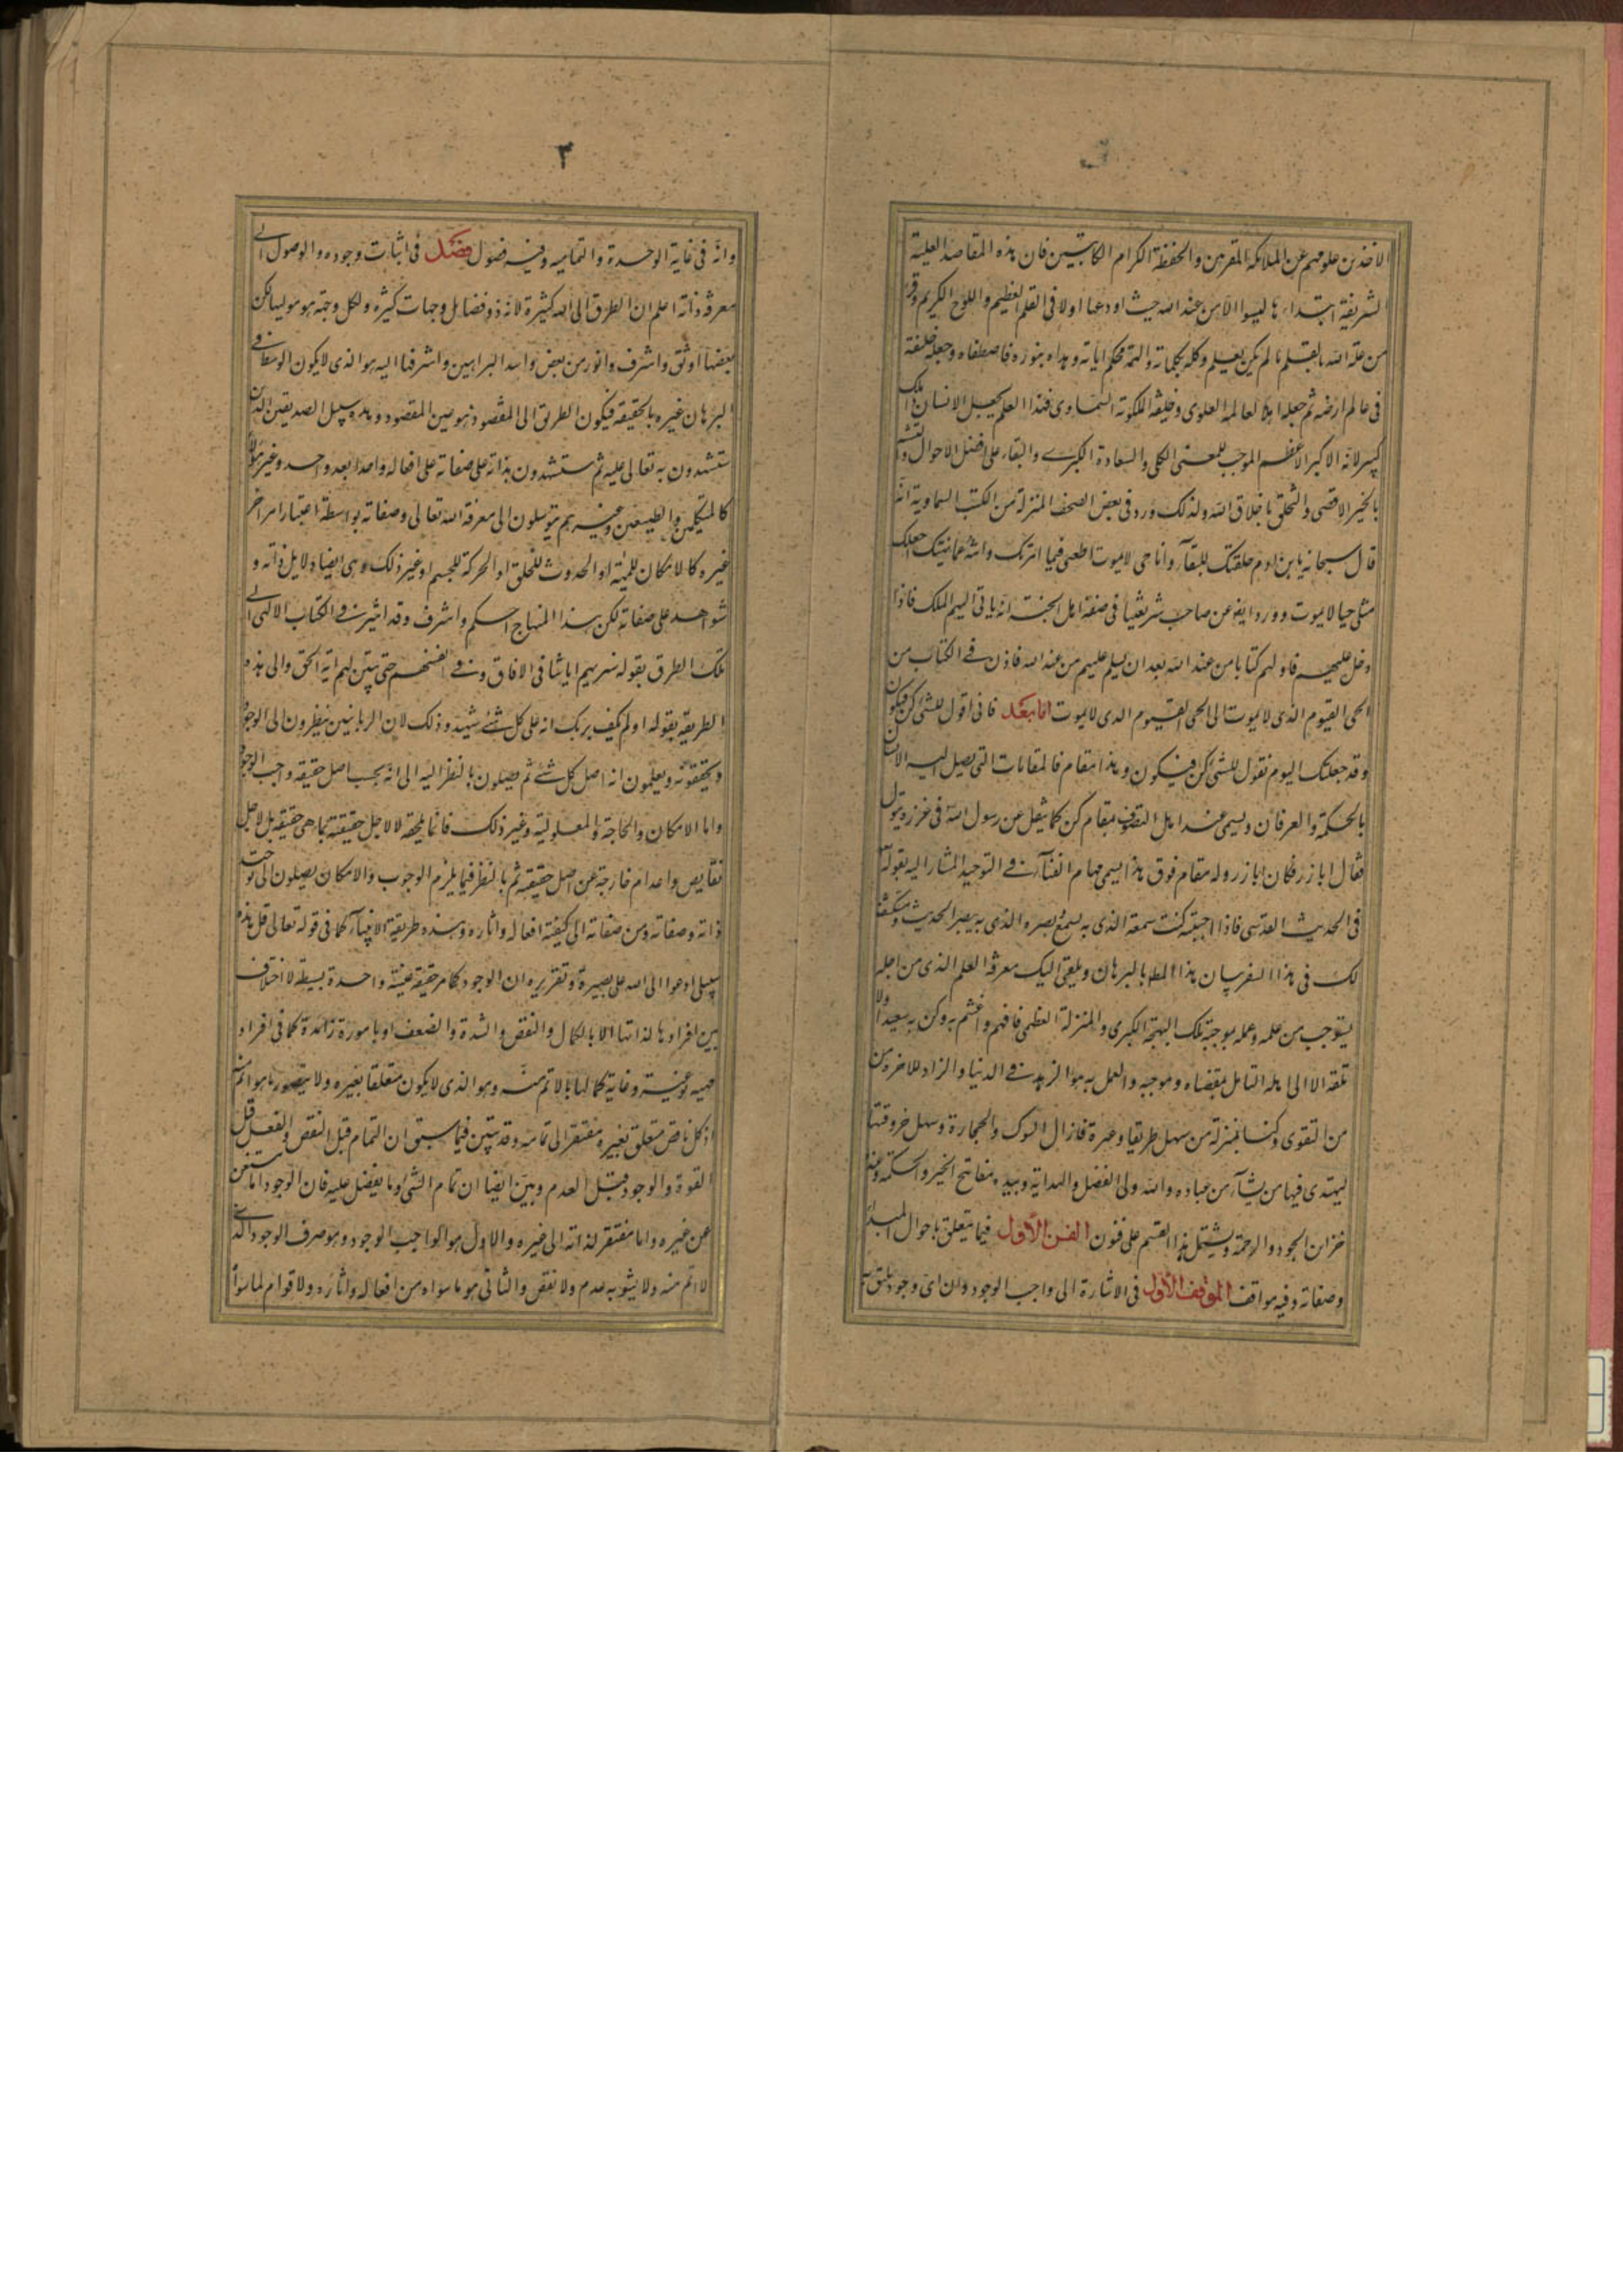 الاخذين علومهم عن الملائكة المقربين والحفظة الكرام الكاتبين فان هذه المقاصد العلية
الشريفة ابتداءها ليسوا الا من عند الله حيث اودعها اولا فى القلم العظيم واللوح الكريم وقر
من علمه الله بالقلم ما لم يكن يعلم وكلمه بكلماته والهمه محكم اياته وهداه بنوره فاصطفاه وجعله خليفة
فى عالم ارضه ثم جعله اهلا لعالمه العلوى وخليفة لملكوته السماوى فهذا العلم يجعل الانسان ذا ملك
كبير لانه الاكبر الاعظم الموجب للغنى الكلى والسعادة الكبرى والبقاء على افضل الاحوال والتشبه
بالخير الاقصى والتخلق باخلاق الله ولذلك ورد فى بعض الصحف المنزلة من الكتب السماوية انه
قال سبحانه يا بن ادم خلقتك للبقاء وانا حى لا يموت اطعنى فيما امرتك وانته عما نهيتك اجعلك
مثلى حيا لا يموت وورد ايضا عن صاحب شريعتنا فى صفة اهل الجنة انه ياتى اليهم الملك فاذا
دخل عليهم ناولهم كتابا من عند الله بعد ان يسلم عليهم من عند الله فاذن فى الكتاب من
الحى القيوم الذى لا يموت الى الحى القيوم الذى لا يموت اما بعد فانى اقول للشئ كن فيكون
وقد جعلتك اليوم تقول للشئ كن فيكون وهذا مقام فالمقامات التى يصل اليه الانسان
بالحكمة والعرفان ويسمى عند اهل التصوف بمقام كن كما ينقل عن رسول الله فى غزوة تبوك
فقال كن اباذر فكان اباذر وله مقام فوق هذا يسمى مقام الفناء فى التوحيد المشار اليه بقوله
فى الحديث القدسى فاذا احببته كنت سمعه الذى به يسمع وبصره الذى به يبصر الحديث وسيتكشف
لك فى هذا السفر بيان هذا المط بالبرهان ويلقى اليك معرفة العلم الذى من اجله
يستوجب من علمه وعمله بموجبه تلك البهجة الكبرى والمنزلة العظمى فافهم واغتنم به وكن به سعيدا ولا
تلقه الا الى اهله القابل بمقتضاه وموجبه والعمل به هو الزهد فى الدنيا والزاد للاخرة من
من التقوى وكنا بمنزلة من سهل طريقا وعرة فازال الشوك والحجارة وسهل حزونتها
ليهتدى فيها من يشاء من عباده والله ولى الفضل والهداية وبيده مفاتيح الخير والحكمة وعنده
خزائن الجود والرحمة ويشتمل هذا القسم على فنون الفن الاول فيما يتعلق باحوال المبدأ
وصفاته وفيه مواقف الموقف الاول فى الاشارة الى واجب الوجود وان اى وجود يليق به
٣
وانه فى غاية الوحدة والتمامية وفيه فصول فصل فى اثبات وجوده والوصول الى
معرفة ذاته اعلم ان الطرق الى الله كثيرة لانه ذو فضايل وجهات كثيرة ولكل وجهة هو موليها لكن
بعضها اوثق واشرف وانور من بعض واسد البراهين واشرفها اليه هو الذى لا يكون الوسط فى
البرهان غيره بالحقيقة فيكون الطريق الى المقصود هو عين المقصود وهذه سبيل الصديقين الذين
يستشهدون به تعالى عليه ثم يستشهدون بذاته على صفاته وعلى افعاله واحدا بعد واحد وغير هؤلاء
كالمتكلمين والطبيعيين وغيرهم يتوسلون الى معرفة الله تعالى وصفاته بواسطة اعتبار امر اخر
غيره كالامكان للمهية او الحدوث للخلق او الحركة للجسم او غير ذلك وهى ايضا دلايل ذاته و
شواهد على صفاته لكن هذا المنهاج احكم واشرف وقد اشير فى الكتاب الالهى الى
تلك الطرق بقوله سنريهم اياتنا فى الافاق وفى انفسهم حتى يتبين لهم انه الحق والى هذه
الطريقة بقوله اولم يكف بربك انه على كل شئ شهيد وذلك لان الربانيين ينظرون الى الوجود
ويحققونه ويعلمون انه اصل كل شئ ثم يصلون بالنظر اليه الى انه بحسب اصل حقيقته واجب الوجود
واما الامكان والحاجة والمعلولية وغير ذلك فانما يلحقه لا لاجل حقيقته بما هى حقيقته بل لاجل
نقايص واعدام خارجة عن اصل حقيقته ثم بالنظر فيما يلزم الوجوب والامكان يصلون الى توحيد
ذاته وصفاته ومن صفاته الى كيفية افعاله واثاره وهذه طريقة الانبياء كما فى قوله تعالى قل هذه
سبيلى ادعوا الى الله على بصيرة وتقريره ان الوجود كما مر حقيقة عينية واحدة بسيطة لا اختلاف
بين افرادها لذاتها الا بالكمال والنقص والشدة والضعف او بامور زائدة كما فى افراد
مهية نوعية وغاية كمالها ما لا اتم منه وهو الذى لا يكون متعلقا بغيره ولا يتصور ما هو اتم منه
اذ كل ناقص متعلق بغيره مفتقر الى تمامه وقد تبين فيما سبق ان التمام قبل النقص والفعل قبل
القوة والوجود قبل العدم وبين ايضا ان تمام الشئ هو ما يفضل عليه فان الوجود اما مستغن
عن غيره واما مفتقر لذاته الى غيره والاول هو الواجب الوجود وهو صرف الوجود الذى
لا اتم منه ولا يشوبه عدم ولا نقص والثانى هو ما سواه من افعاله واثاره ولا قوام لما سواه